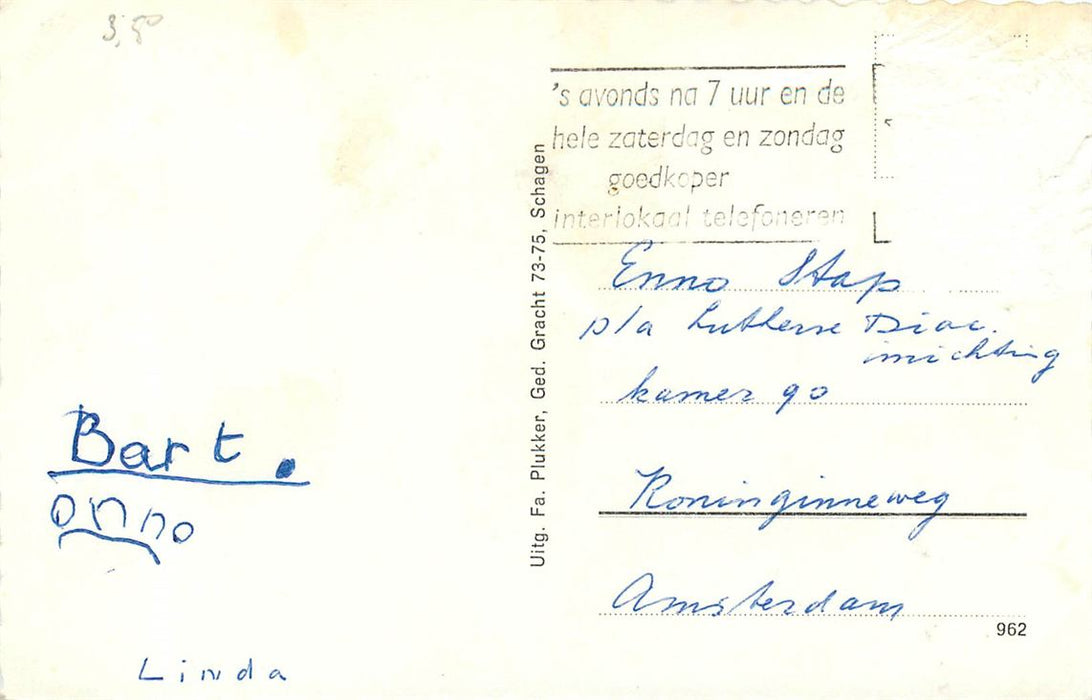 3,50
's avonds na 7 uur en de
hele zaterdag en zondag
goedkoper
interlokaal telefoneren
Uitg. Fa. Plukker, Ged. Gracht 73-75, Schagen
Enno Stap
p/a Lutherse Diac.
inrichting
kamer 90
Koninginneweg
Amsterdam
962
Bart.
onno
Linda